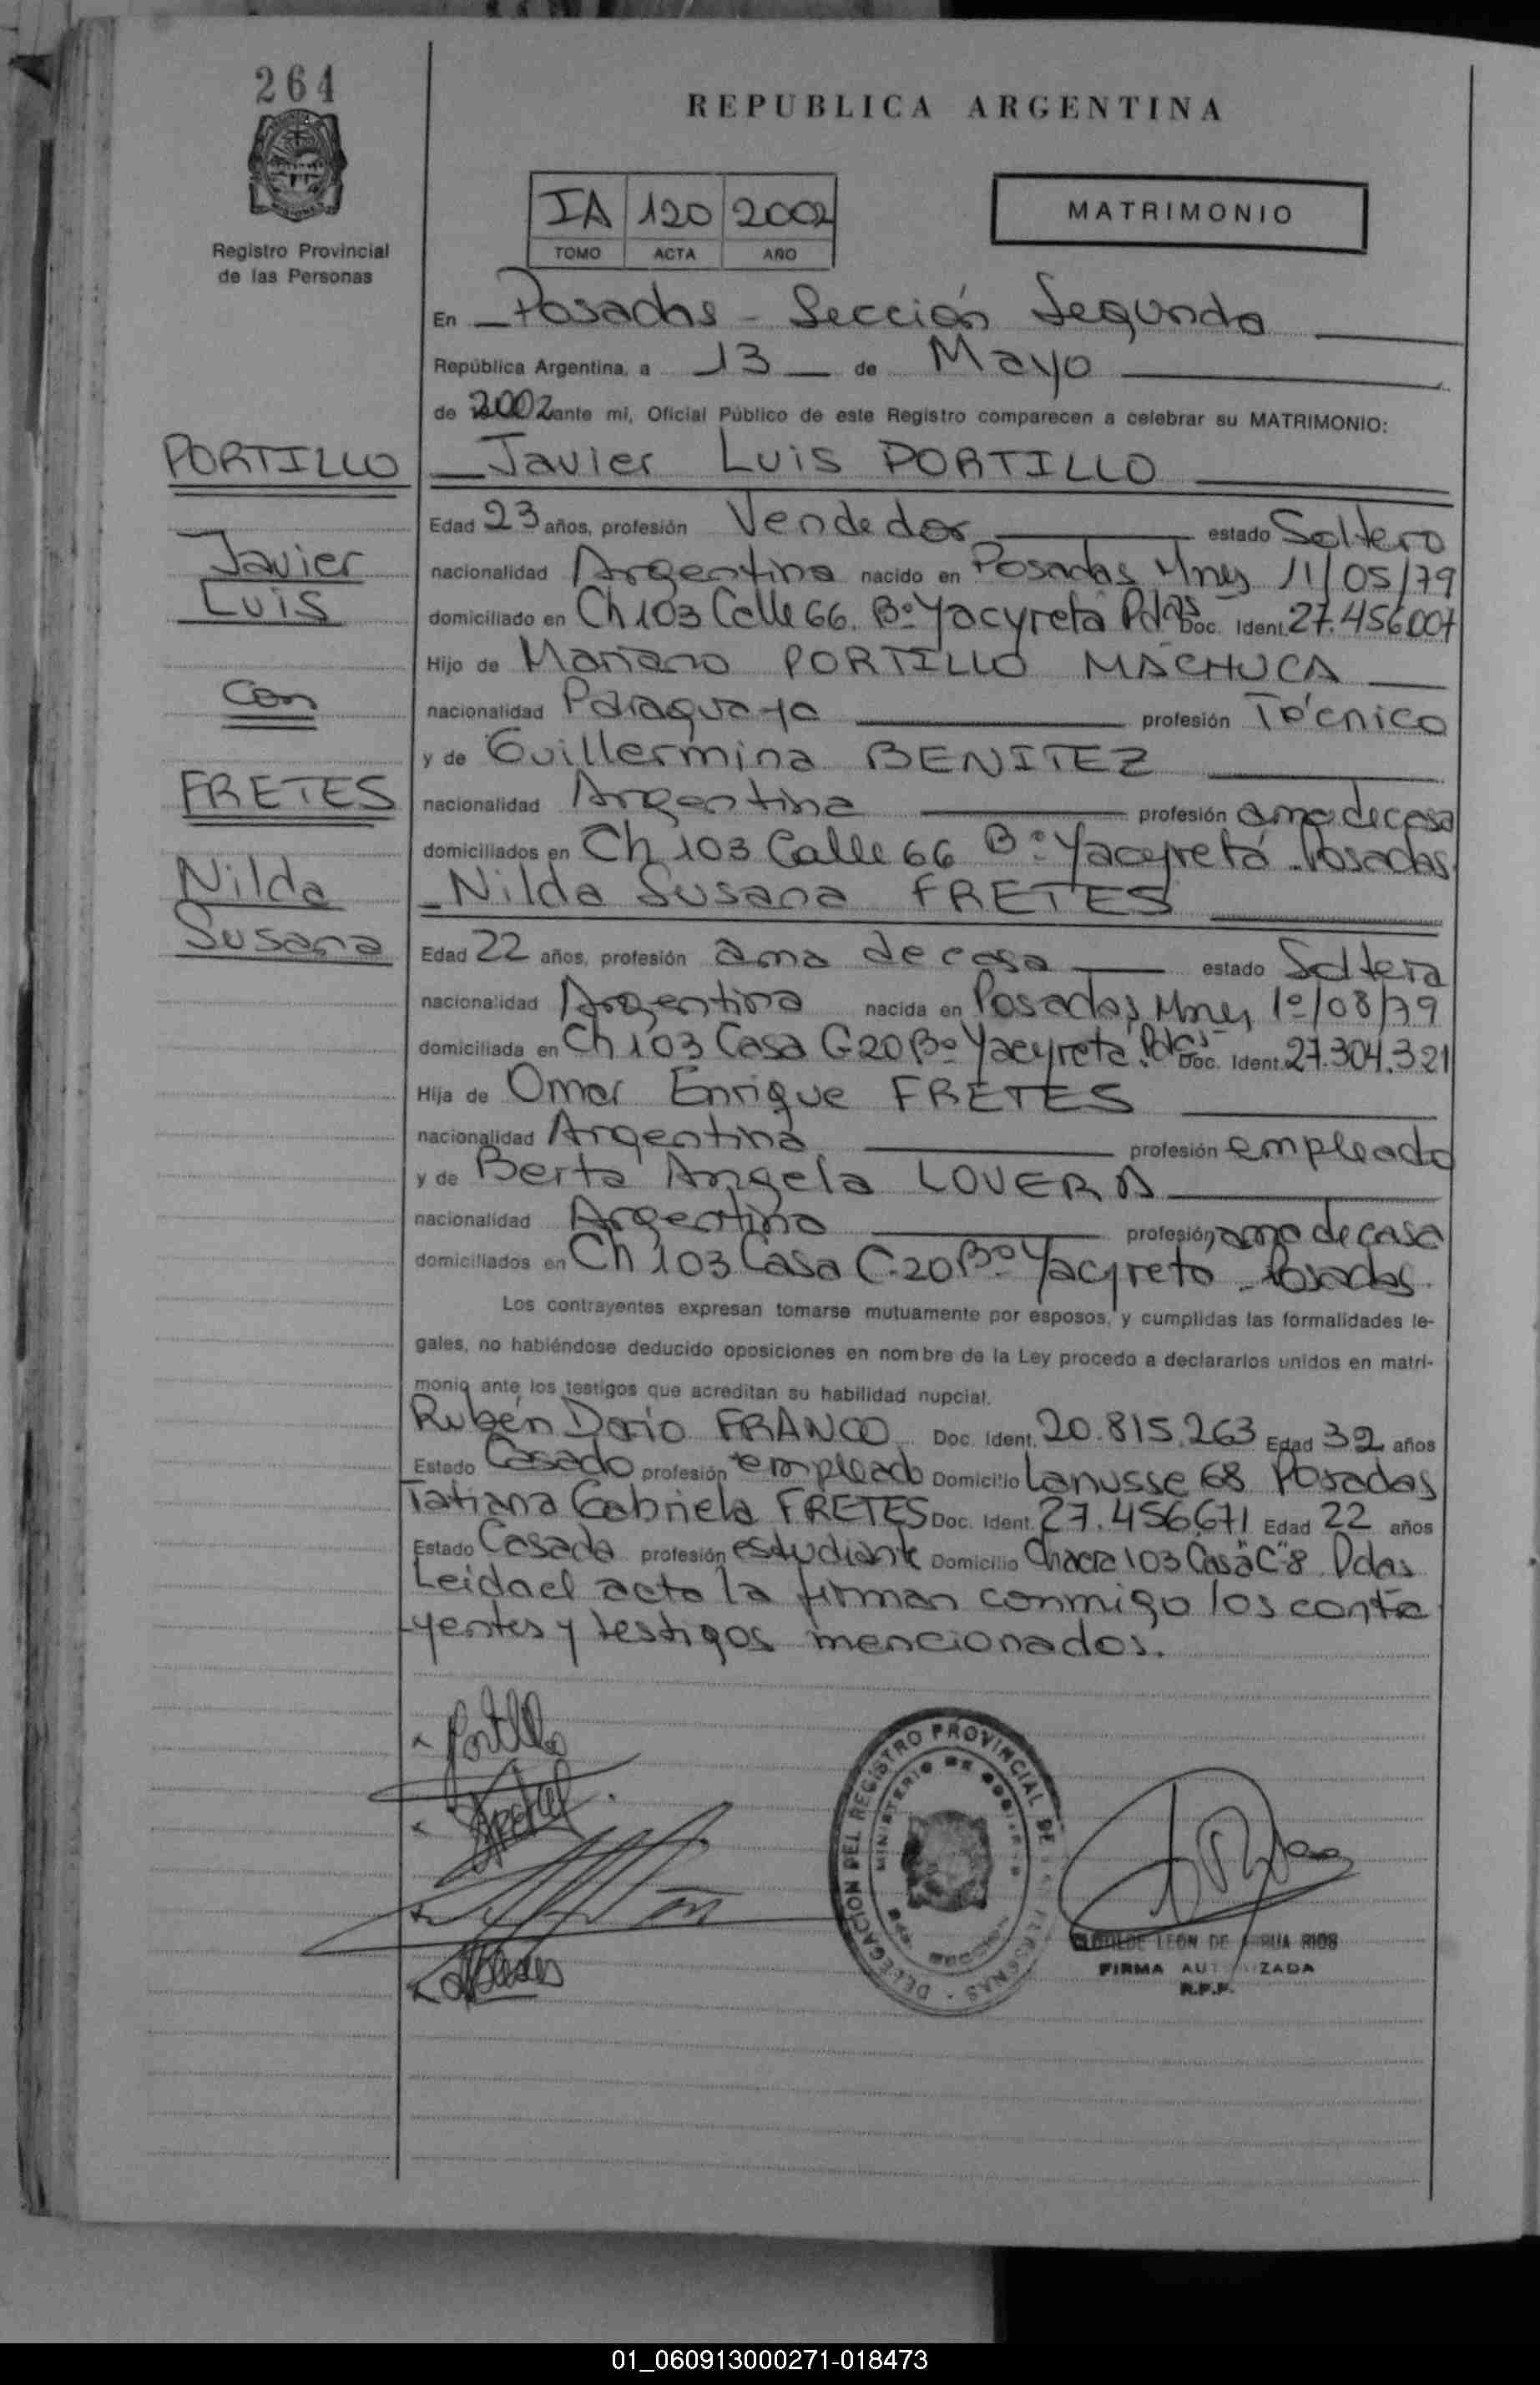 264
REPUBLICA ARGENTINA
IA 120 2002
TOMO ACTA AÑO
MATRIMONIO
Registro Provincial
de las Personas
En Posadas - Sección Segunda
República Argentina, a 13 de Mayo
de 2002 ante mí, Oficial Público de este Registro comparecen a celebrar su MATRIMONIO:
PORTILLO
Javier
Luis
con
FRETES
Nilda
Susana
Javier Luis PORTILLO
Edad 23 años, profesión Vendedor estado Soltero
nacionalidad Argentina nacido en Posadas Mnes 11/05/79
domiciliado en Ch 103 Calle 66. Bº Yacyreta Pdas Doc. Ident. 27.456.007
Hijo de Mariano PORTILLO MACHUCA
nacionalidad Paraguaya profesión Técnico
y de Guillermina BENITEZ
nacionalidad Argentina profesión ama de casa
domiciliados en Ch 103 Calle 66 Bº Yacyretá - Posadas.
Nilda Susana FRETES
Edad 22 años, profesión ama de casa estado Soltera
nacionalidad Argentina nacida en Posadas Mnes 1º/08/79
domiciliada en Ch 103 Casa C-20 Bº Yacyreta. Pdas Doc. Ident. 27.304.321
Hija de Omar Enrique FRETES
nacionalidad Argentina profesión empleado
y de Berta Angela LOVERA
nacionalidad Argentina profesión ama de casa
domiciliados en Ch 103 Casa C-20 Bº Yacyreta - Posadas.
Los contrayentes expresan tomarse mutuamente por esposos, y cumplidas las formalidades le-
gales, no habiéndose deducido oposiciones en nombre de la Ley procedo a declararlos unidos en matri-
monio ante los testigos que acreditan su habilidad nupcial.
Rubén Dario FRANCO Doc. Ident. 20.815.263 Edad 32 años
Estado Casado profesión empleado Domicilio Lanusse 68 Posadas
Tatiana Gabriela FRETES Doc. Ident. 27.456.671 Edad 22 años
Estado Casada profesión estudiante Domicilio Chacra 103 Casa "C"8 Pdas
Leida el acta la firman conmigo los contra
yentes y testigos mencionados.
Portillo
DELEGACION DEL REGISTRO PROVINCIAL DE LAS PERSONAS
MINISTERIO DE GOBIERNO
LEON DE RIOS
FIRMA AUTORIZADA
R.P.P.
01_060913000271-018473